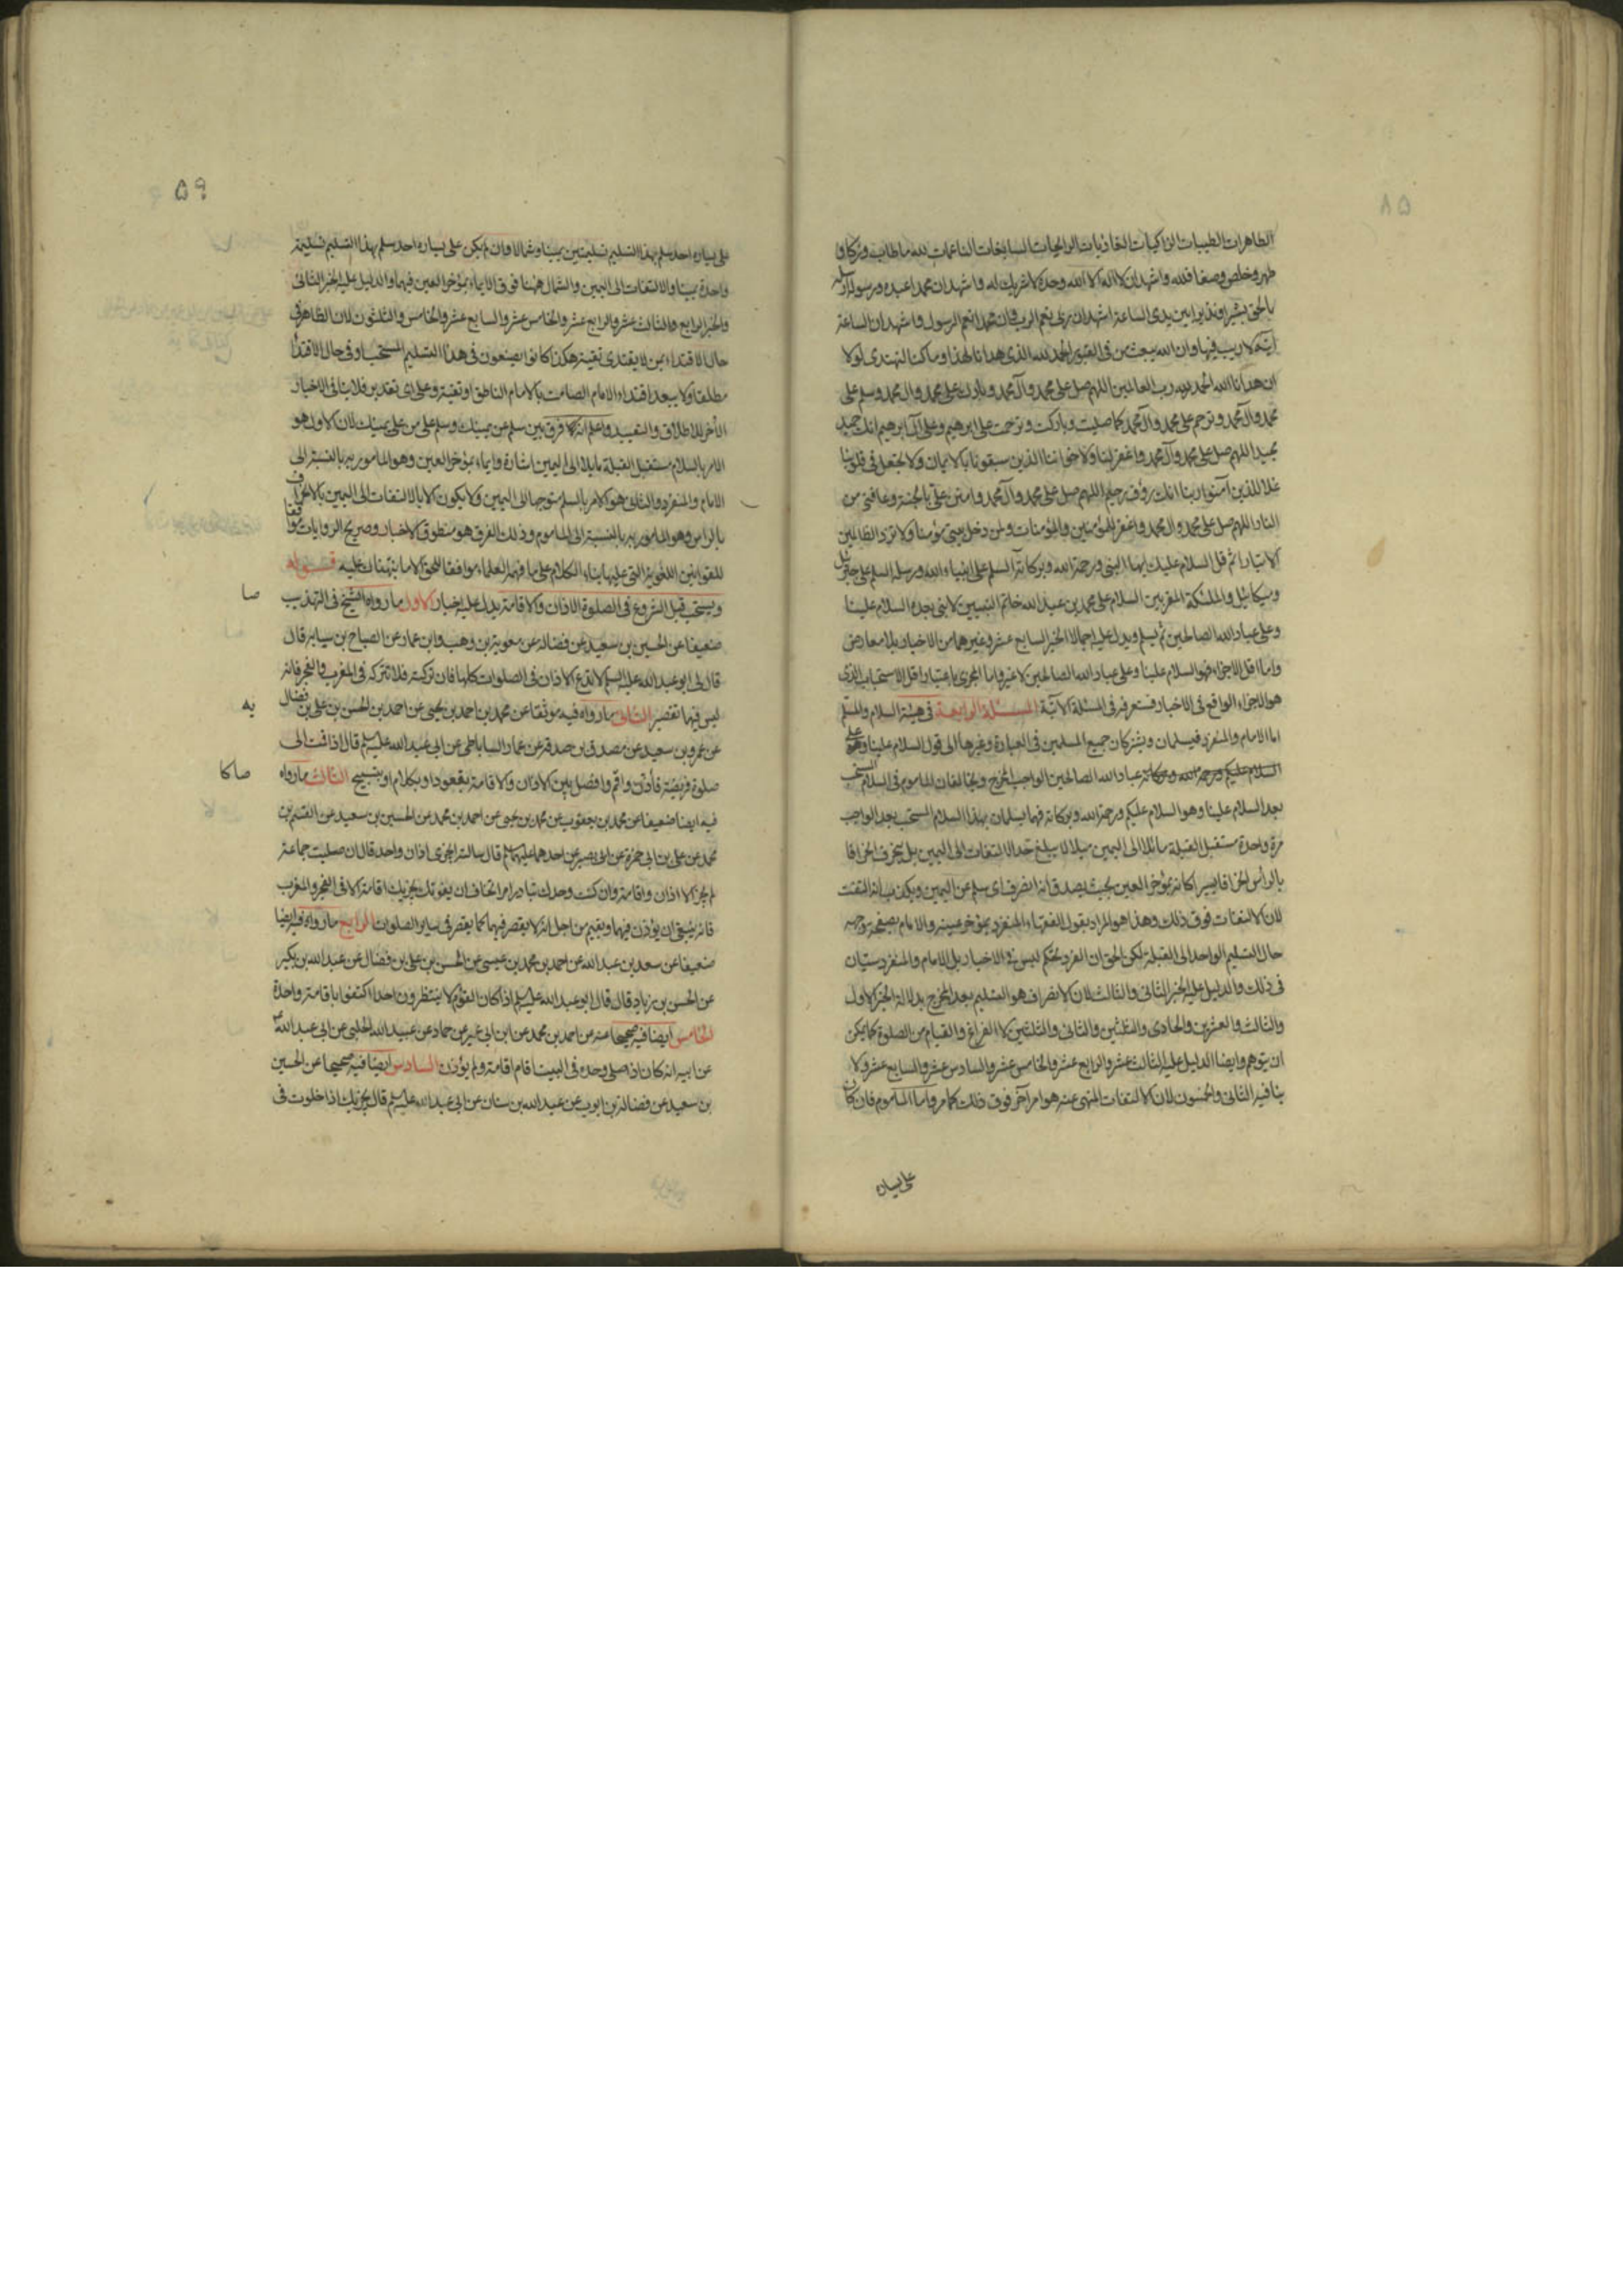 ۵۸
الطاهرات الطيبات الزاكيات الغاديات الرايحات السابغات الناعمات لله ما طاب وزكا و
طهر وخلص وصفا فلله واشهد ان لا اله الا الله وحده لا شريك له واشهد ان محمدا عبده ورسوله ارسله
بالحق بشيرا ونذيرا بين يدى الساعة اشهد ان ربى نعم الرب وان محمدا نعم الرسول واشهد ان الساعة
آتية لا ريب فيها وان الله يبعث من فى القبور الحمد لله الذى هدانا لهذا وما كنا لنهتدى لولا
ان هدانا الله الحمد لله رب العالمين اللهم صل على محمد وآل محمد وبارك على محمد وال محمد وسلم على
محمد وال محمد وترحم على محمد وآل محمد كما صليت وباركت وترحمت على ابرهيم وعلى آل ابرهيم انك حميد
مجيد اللهم صل على محمد وآل محمد واغفر لنا ولاخواننا الذين سبقونا بالايمان ولا تجعل فى قلوبنا
غلا للذين آمنوا ربنا انك رؤف رحيم اللهم صل على محمد وآل محمد وامنن على بالجنة وعافنى من
النار اللهم صل على محمد وال محمد واغفر للمؤمنين والمؤمنات ولمن دخل بيتى مؤمنا ولا تزد الظالمين
الا تبارا ثم قل السلام عليك ايها النبى ورحمة الله وبركاته السلم على انبياء الله ورسله السلم على جبرئيل
وميكائيل والملئكة المقربين السلام على محمد بن عبد الله خاتم النبيين لا نبى بعده السلام علينا
وعلى عباد الله الصالحين ثم يسلم ويدل عليه اجمالا الخبر السابع عشر وغيرهما من الاخبار بلا معارض
واما اقل الاجزاء فهو السلام علينا وعلى عباد الله الصالحين لا غير واما المجزى باعتبار اقل الاستحباب الذى
هو الاجزاء الواقع فى الاخبار فستعرفه فى المسئلة الآتية المسئلة الرابعة فى هيئة السلام والمسلم
اما الامام والمنفرد فيسلمان ويشتركان جميع المسلمين فى العبادة وغيرها الى قول السلام علينا وعلى
عباد الله الصالحين الواجب المخرج ويخالفان الماموم فى السلام المستحب
بعد السلام علينا وهو السلام عليكم ورحمة الله وبركاته فهما يسلمان بهذا السلام المستحب بعد الواجب
مرة واحدة مستقبل القبلة مائلا الى اليمين ميلا لا يبلغ حد الالتفات الى اليمين بل ينحرف انحرافا
بالراس انحرافا يسيرا كانه بمؤخر العين بحيث يصدق انه انصرف اى سلم عن اليمين ويكذب انه التفت
لان الالتفات فوق ذلك وهذا هو المراد بقول الفقهاء المنفرد بمؤخر عينيه والامام بصفحة وجهه
حال التسليم الواحد الى القبلة لكن الحق ان الفرد بحكم ليس فى الاخبار بل الامام والمنفرد سيان
فى ذلك والدليل عليه الخبر الثانى والثالث لان الانصراف هو التسليم بعد المخرج بدلالة الخبر الاول
والثالث والعشرين والحادى والثلثين والثانى والثلثين لا الفراغ والقيام من الصلوة كما يمكن
ان يتوهم وايضا الدليل عليه الثالث عشر والرابع عشر والخامس عشر والسادس عشر والسابع عشر ولا
ينافيه الثانى والخمسون لان الالتفات المنهى عنه هو امر آخر فوق ذلك كما مر واما الماموم فان كان
على يساره
۵۹
على يساره احد سلم بهذا التسليم تسليمتين يمينا وشمالا وان لم يكن على يساره احد سلم بهذا التسليم تسليمة
واحدة يمينا والالتفات الى اليمين والشمال ههنا فوق الايماء بمؤخر العين فيهما والدليل عليه الخبر الثانى
والخبر الرابع والثالث عشر والرابع عشر والخامس عشر والسابع عشر والخامس والثلثون لان الظاهر فى
حال الاقتداء بمن لا يقتدى تقية هكذا كانوا يصنعون فى هذا التسليم المستحب او فى حال الاقتداء
مطلقا ولا يبعد اقتداء الامام الصامت بالامام الناطق او تقية وعلى اى تقدير فلا ينافى الاخبار
الأخر للاطلاق والتقييد واعلم انه لا فرق بين سلم عن يمينك وسلم على من على يمينك لان الاول هو
الامر بالسلام مستقبل القبلة مايلا الى اليمين اشارة وايماء بمؤخر العين وهو المامور به بالنسبة الى
الامام والمنفرد والثانى هو الامر بالسلم متوجها الى اليمين ولا يكون الا بالالتفات الى اليمين بالانحراف
بالراس وهو المامور به بالنسبة الى الماموم وذلك الفرق هو منطوق الاخبار وصريح الروايات موافقا
للقوانين اللغوية التى عليها بناء الكلام على ما فهمه العلماء موافقا للحق الا ما نبهناك عليه قوله
ويستحب قبل الشروع فى الصلوة الاذان والاقامة يدل عليه اخبار الاول ما رواه الشيخ فى التهذيب
صا
ضعيفا عن الحسين بن سعيد عن فضالة عن معوية بن وهب او ابن عمار عن الصباح بن سيابه قال
قال لى ابو عبد الله عليه السلم لا تدع الاذان فى الصلوات كلها فان تركته فلا تتركه فى المغرب والفجر فانه
ليس فيها تقصير الثانى ما رواه فيه موثقا عن محمد بن احمد بن يحيى عن احمد بن الحسن بن على بن فضال
يه
عن عمرو بن سعيد عن مصدق بن صدقة عن عمار الساباطى عن ابى عبد الله عليه سلم قال اذا قمت الى
صلوة فريضة فأذن واقم وافصل بين الاذان والاقامة بقعود او بكلام او بتسبيح الثالث ما رواه
صا كا
فيه ايضا ضعيفا عن محمد بن يعقوب عن محمد بن يحيى عن احمد بن محمد عن الحسين بن سعيد عن القسم بن
محمد عن على بن ابى حمزة عن ابى بصير عن احدهما عليهما سلم قال سالته ايجزى اذان واحد قال ان صليت جماعة
لم يجز الا اذان واقامة وان كنت وحدك تبادر امرا تخاف ان يفوتك يجزيك اقامة الا فى الفجر والمغرب
فانه ينبغى ان يؤذن فيهما ويقيم من اجل انه لا يقصر فيهما كما يقصر فى ساير الصلوات الرابع ما رواه فيه ايضا
ضعيفا عن سعد بن عبد الله عن احمد بن محمد بن عيسى عن الحسن بن على بن فضال عن عبد الله بن بكير
عن الحسن بن زياد قال قال ابو عبد الله عليه سلم اذا كان القوم لا ينتظرون احدا اكتفوا باقامة واحدة
الخامس ايضا فيه صحيحا عنه عن احمد بن محمد عن ابن ابى عمير عن حماد عن عبيد الله الحلبى عن ابى عبد الله
عن ابيه انه كان اذا صلى وحده فى البيت اقام اقامة ولم يؤذن السادس ايضا فيه صحيحا عن الحسين
بن سعيد عن فضالة بن ايوب عن عبد الله بن سنان عن ابى عبد الله عليه سلم قال يجزيك اذا خلوت فى